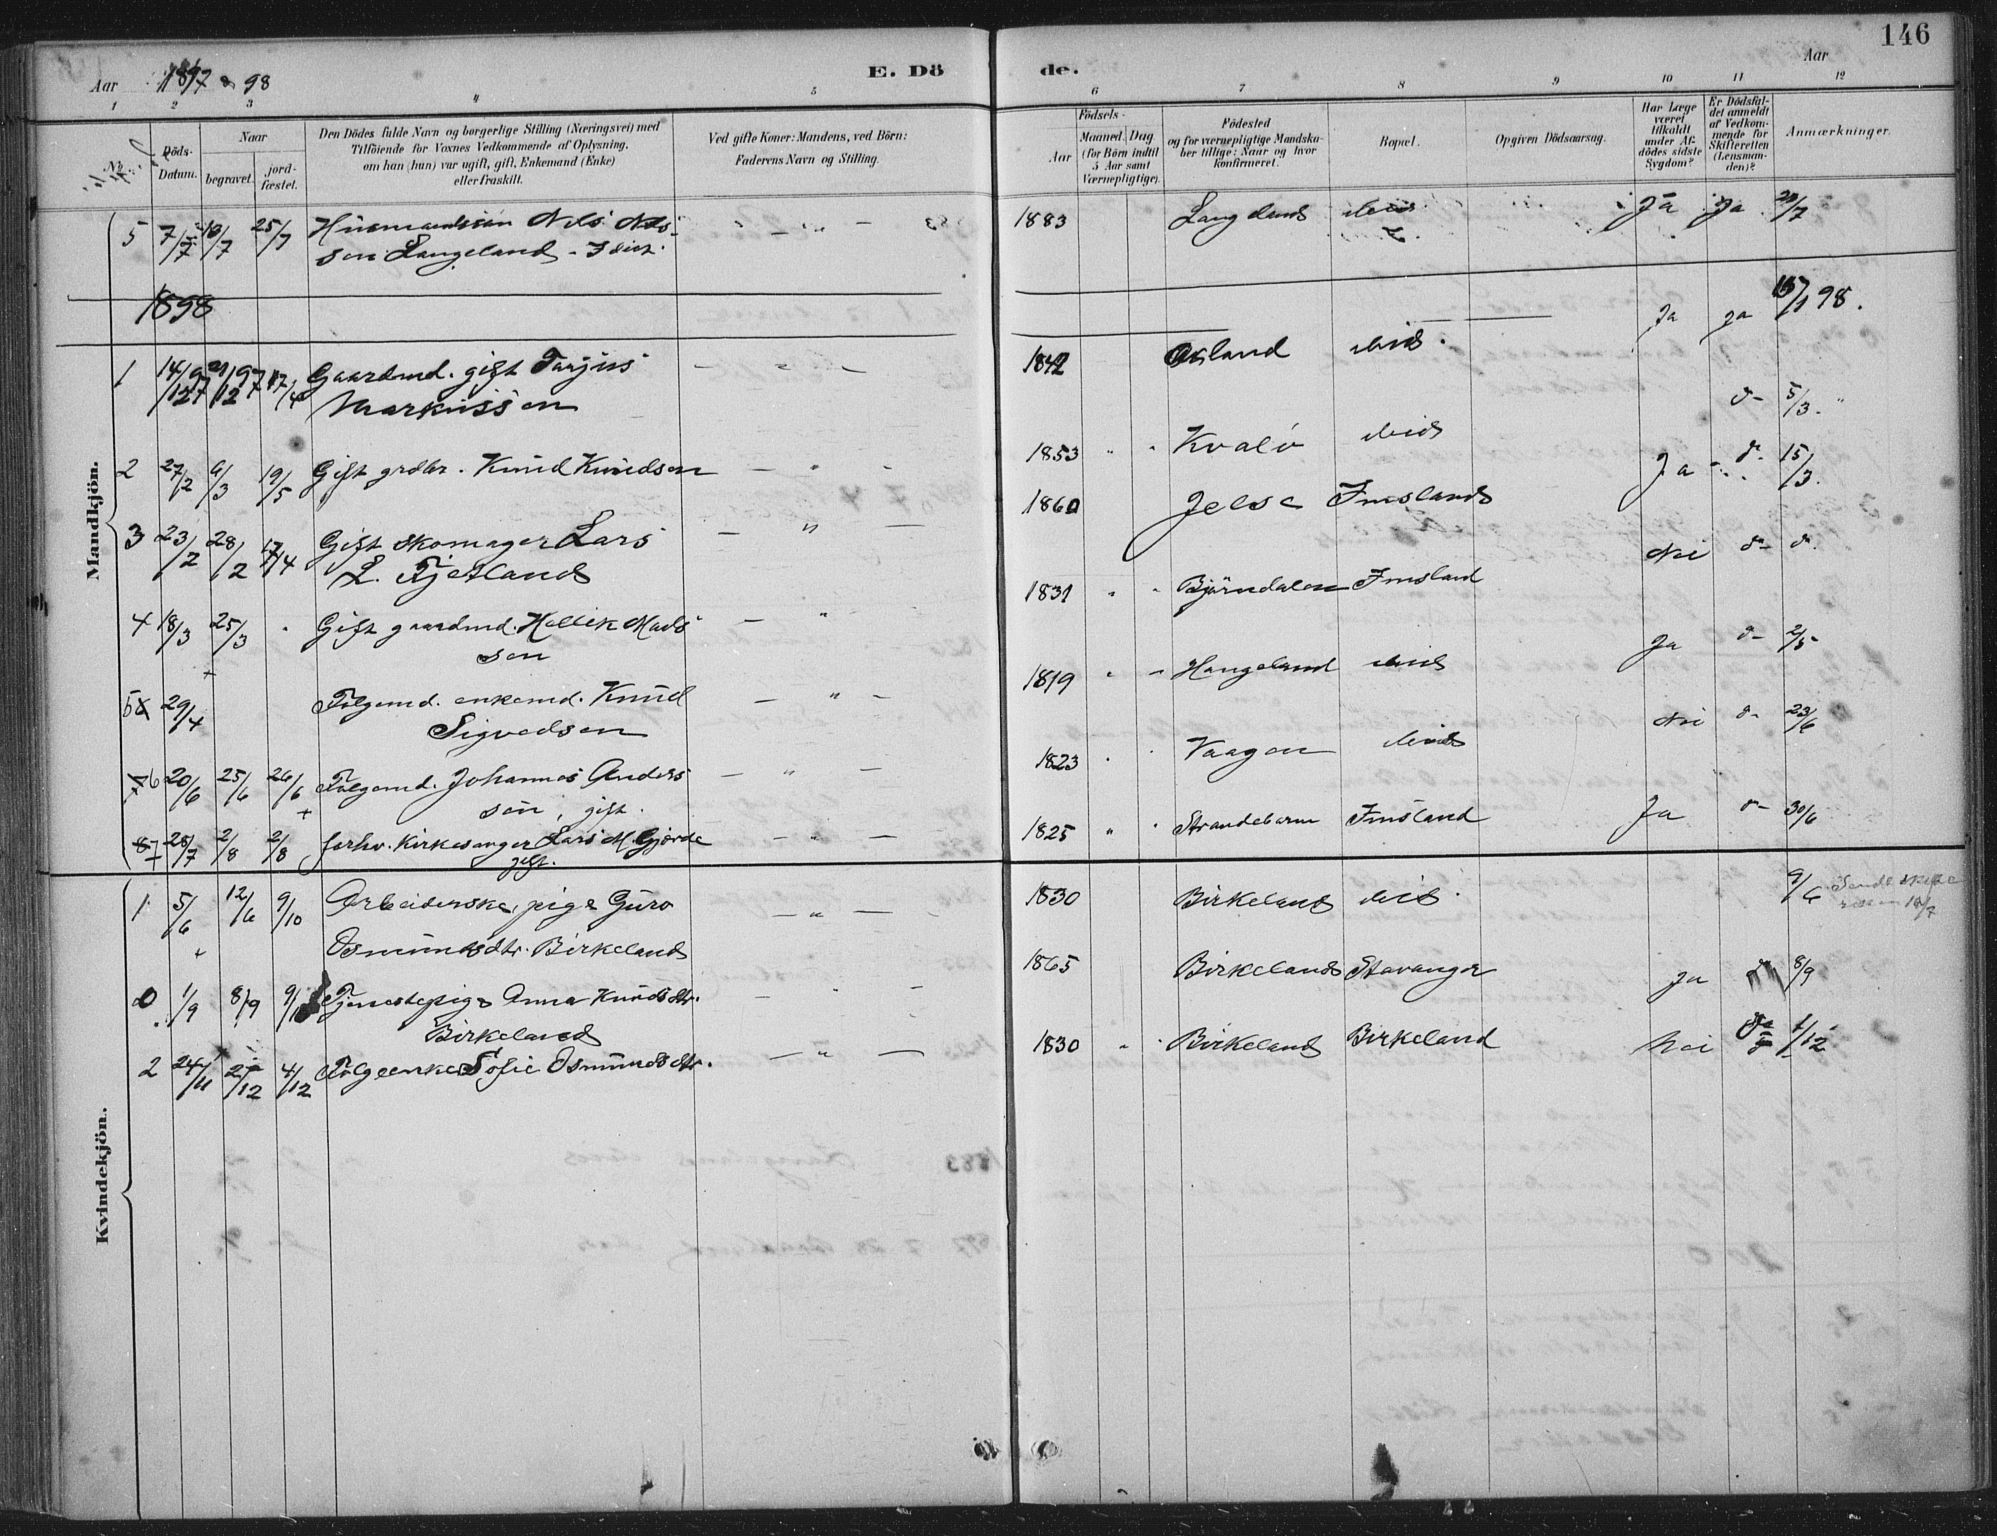 146
Aar 1897 & 98 E. Dö de. Aar
1 2 3 4 5 6 7 8 9 10 11 12
No. Döds-Datum. Naar begravet. jord-fæstet.
Den Dödes fulde Navn og borgerlige Stilling (Næringsvei) med
Tilföiende for Voxnes Vedkommende af Oplysning,
om han (hun) var ugift, gift, Enkemand (Enke)
eller fraskilt.
Ved gifte Koner: Mandens, ved Börn:
Faderens Navn og Stilling.
Födsels-
Aar Maaned. Dag
(for Börn indtil
5 Aar samt
Værnepligtige).
Födested
og for værnepligtige Mandska-
ber tillige: Naar og hvor
konfirmeret.
Bopæl.
Opgiven Dödsaarsag.
Har Læge
været
tilkaldt
under Af-
dödes sidste
Sygdom?
Er Dödsfal-
det anmeldt
af Vedkom-
mende for
Skifteretten
(Lensman-
den)?
Anmærkninger.
Mandkjön.
5 7/7 10/7 25/7 Husmandssön Nils Nils- — " — 1883 Langeland ibid Ja ja 20/7
sen Langeland
1898
1 14/12 97 21/12 97 17/4 Gaardmd. gift Tarjus — " — 1842 Øsland ibid. Ja ja 15/1 98.
Markussen
2 27/2 6/3 19/5 Gift grdbr. Knud Knudsen — " — 1853 " " Kvalö ibid d- 5/3.
3 23/2 28/2 17/4 Gift skomager Lars — " — 1860 Jelse Imsland Ja d- 15/3.
L. Tjetland
4 18/3 25/3 " Gift gaardmd. Hallik Mads — " — 1831 " " Björndalen Imsland Nei d- d-
sen
5 29/4 Fölgemd. enkemd. Knud — " — 1819 " " Haugeland ibid Ja d- 2/5
Sigvedsen
6 20/6 25/6 26/6 Fölgemd. Johannes Anders — " — 1823 " " Vaagen ibid Nei d- 23/6
sen, gift.
7 28/7 2/8 2/8 forhv. Kirkesanger Lars M. Gjerde — " — 1825 " " Strandebarm Imsland Ja d- 30/6
gift.
Kvindekjön.
1 5/6 12/6 9/10 Arbeiderske, pige Guro — " — 1830 Birkeland ibid. 9/6
Osmundsdtr. Birkeland
0 1/9 8/9 9/10 Tjenestepige Anna Knudsdtr. — " — 1865 Birkeland Stavanger Ja 8/9
Birkeland
2 24/11 2/12 4/12 Fölgeenke Sofie Osmundsdtr. — " — 1830 " " Birkeland Birkeland Nei 1/12